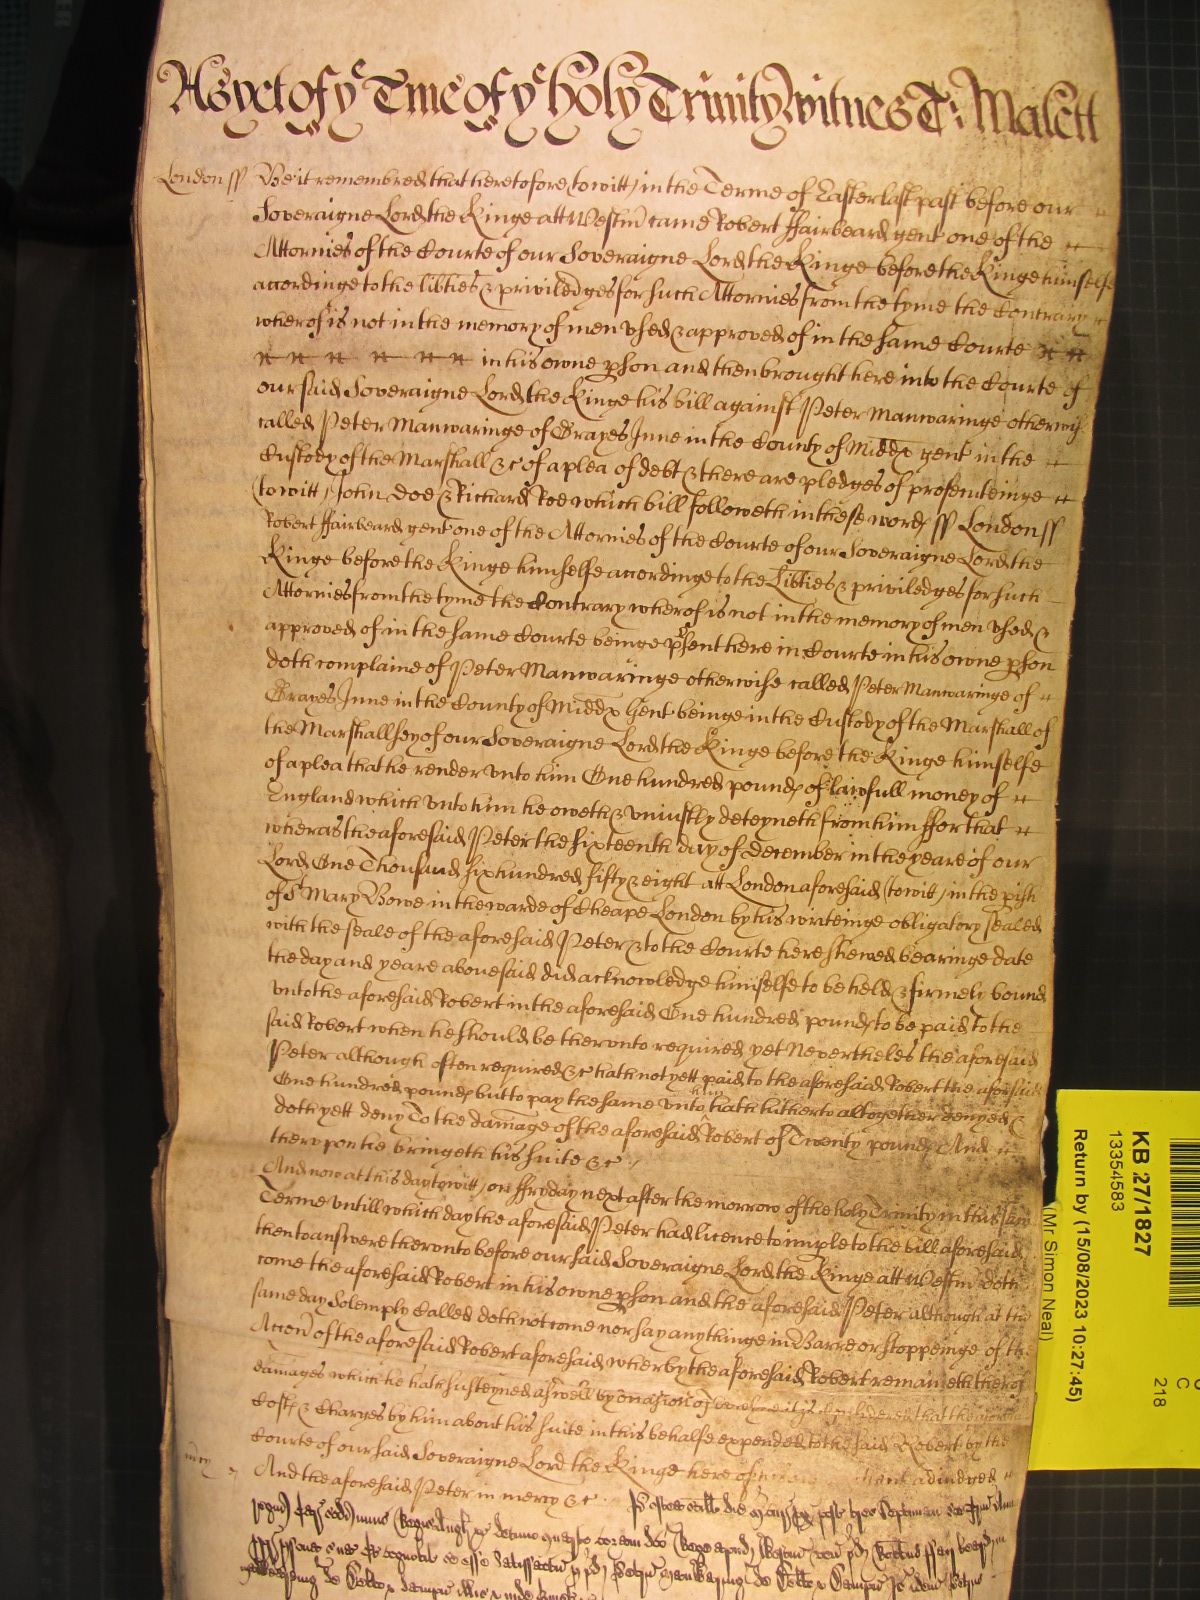 As yet of ye Tme of ye holy Trinity witnes T: Malett
London ss Be it remembred that heretofore (to witt) in the Terme of Easter last past before our
Soveraigne Lord the Kinge att Westm came Robert ffairbeard gent one of the
Attornies of the Courte of our Soveraigne Lord the Kinge before the Kinge himselfe
accordinge to the libties & priviledges for such Attornies from the tyme the Contrary
wherof is not in the memory of men vsed & approved of in the same Courte
in his owne pson and then brought here into the Courte of
our said Soveraigne Lord the Kinge his bill against Peter Manwaringe otherwise
called Peter Manwaringe of Grayes Inne in the County of Middx gent in the
Custody of the Marshall &c of a plea of debt & there are pledges of prosecuteinge
(to witt) John Doe & Richard Roe which bill followeth in these words ss London ss
Robert ffairbeard gent one of the Attornies of the Courte of our Soveraigne Lord the
Kinge before the Kinge himselfe accordinge to the Libties & priviledges for such
Attornies from the tyme the Contrary wherof is not in the memory of men vsed &
approved of in the same Courte beinge psent here in Courte in his owne pson
doth complaine of Peter Manwaringe otherwise called Peter Manwaringe of
Grayes Inne in the County of Middx Gent beinge in the Custody of the Marshall of
the Marshallsey of our Soveraigne Lord the Kinge before the Kinge himselfe
of a plea that he render vnto him One hundred pounds of lawfull money of
England which vnto him he oweth & vniustly deteyneth from him ffor that
wheras the aforesaid Peter the sixteenth day of December in the yeare of our
Lord One Thousand six hundred fifty & eight att London aforesaid (to witt) in the pish
of St Mary Bowe in the warde of Cheape London by his writeinge obligatory sealed
with the seale of the aforesaid Peter & to the Courte here shewed bearinge date
the day and yeare abovesaid did acknowledge himselfe to be held & firmely bound
vnto the aforesaid Robert in the aforesaid One hundred pounds to be paid to the
said Robert when he should be thervnto required yet Nevertheles the aforesaid
Peter although often required &c hath not yett paid to the aforesaid Robert the aforesaid
One hundred pounds but to pay the same vnto him hath hitherto altogether denyed &
doth yett deny To the damage of the aforesaid Robert of Twenty pounds And
thervpon he bringeth his suite &c
And now at this day (to witt) on ffryday next after the morrow of the holy Trinity in this same
Terme vntill which day the aforesaid Peter had licence to imple to the bill aforesaid
then to answere thervnto before our said Soveraigne Lord the Kinge att Westm doth
come the aforesaid Robert in his owne pson and the aforesaid Peter although at the
same day Solemply Called doth not come nor say any thinge in Barre or stoppeinge of the
Accon of the aforesaid Robert aforesaid wherby the aforesaid Robert remaineth therof
damages which he hath susteyned aswell by occasion of that the
Costs & Charges by him about his suite in this behalfe expended to the said Robert by the
Courte of our said Soveraigne Lord the Kinge here adiudged
mcy And the aforesaid Peter in mercy &c
KB 27/1827
13354583
Return by (15/08/2023 10:27:45)
(Mr Simon Neal)
C
218